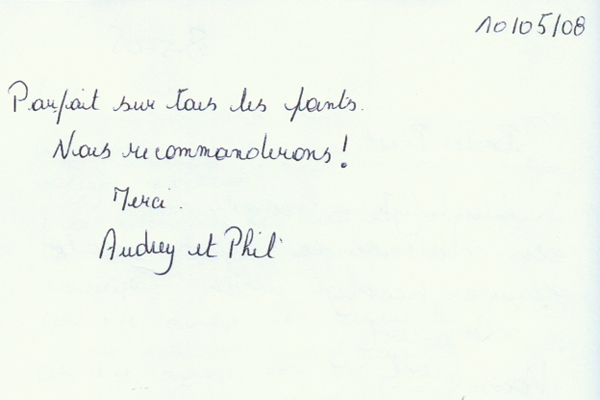 10/05/08
Parfait sur tous les points.
Nous recommanderons!
Merci.
Audrey et Phil